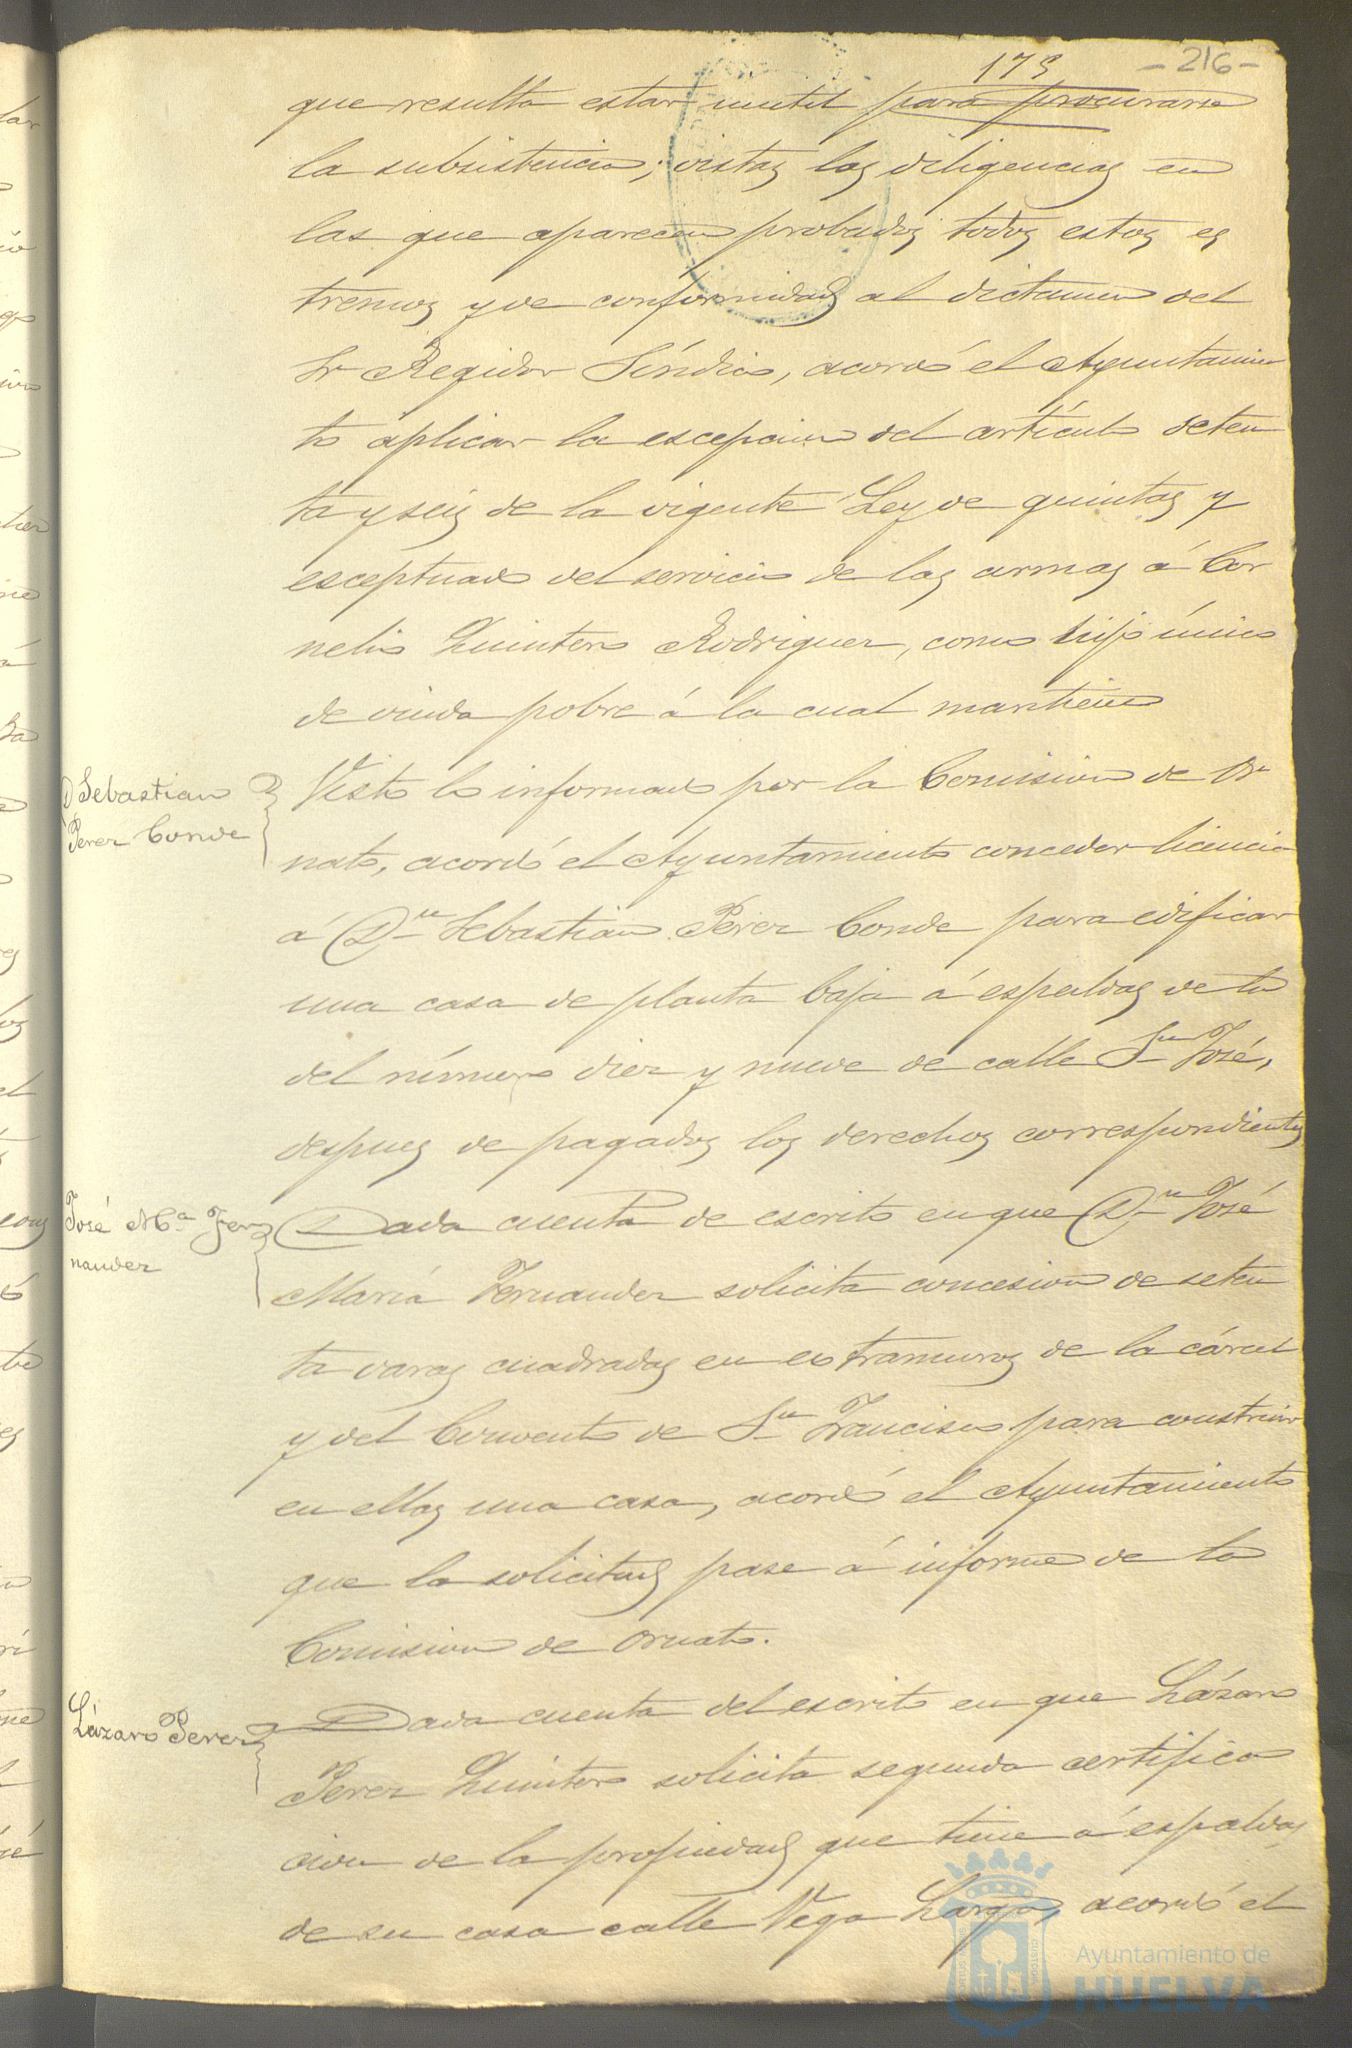 173 - 216 -
que resulta estar inutil para procurarse
la subsistencia; vistas las diligencias en
las que aparecen probados todos estos es
tremos y de conformidad al dictamen del
Sr Regidor Síndico, acordó el Ayuntamien
to aplicar la escepcion del artículo seten
ta y seis de la vigente Ley de quintas y
esceptuado del servicio de las armas á Cor
nelio Quintero Rodriguez, como hijo único
de viuda pobre á la cual mantiene
D Sebastian
Perez Conde
Visto lo informado por la Comision de Or
nato, acordó el Ayuntamiento conceder licencia
á Dn Sebastian Perez Conde para edificar
una casa de planta baja á espaldas de la
del número diez y nueve de calle Sn José,
despues de pagados los derechos correspondientes
José Ma Fer
nandez
Dada cuenta de escrito en que Dn José
María Fernandez solicita concesion de seten
ta varas cuadradas en estramuros de la cárcel
y del Convento de Sn Francisco para construir
en ellas una casa, acordó el Ayuntamiento
que la solicitud pase á informe de la
Comision de Ornato.
Lázaro Perez
Dada cuenta del escrito en que Lázaro
Perez Quintero solicita segunda certifica
cion de la propiedad que tiene á espaldas
de su casa calle Vega Larga, acordó el
Ayuntamiento de
HUELVA